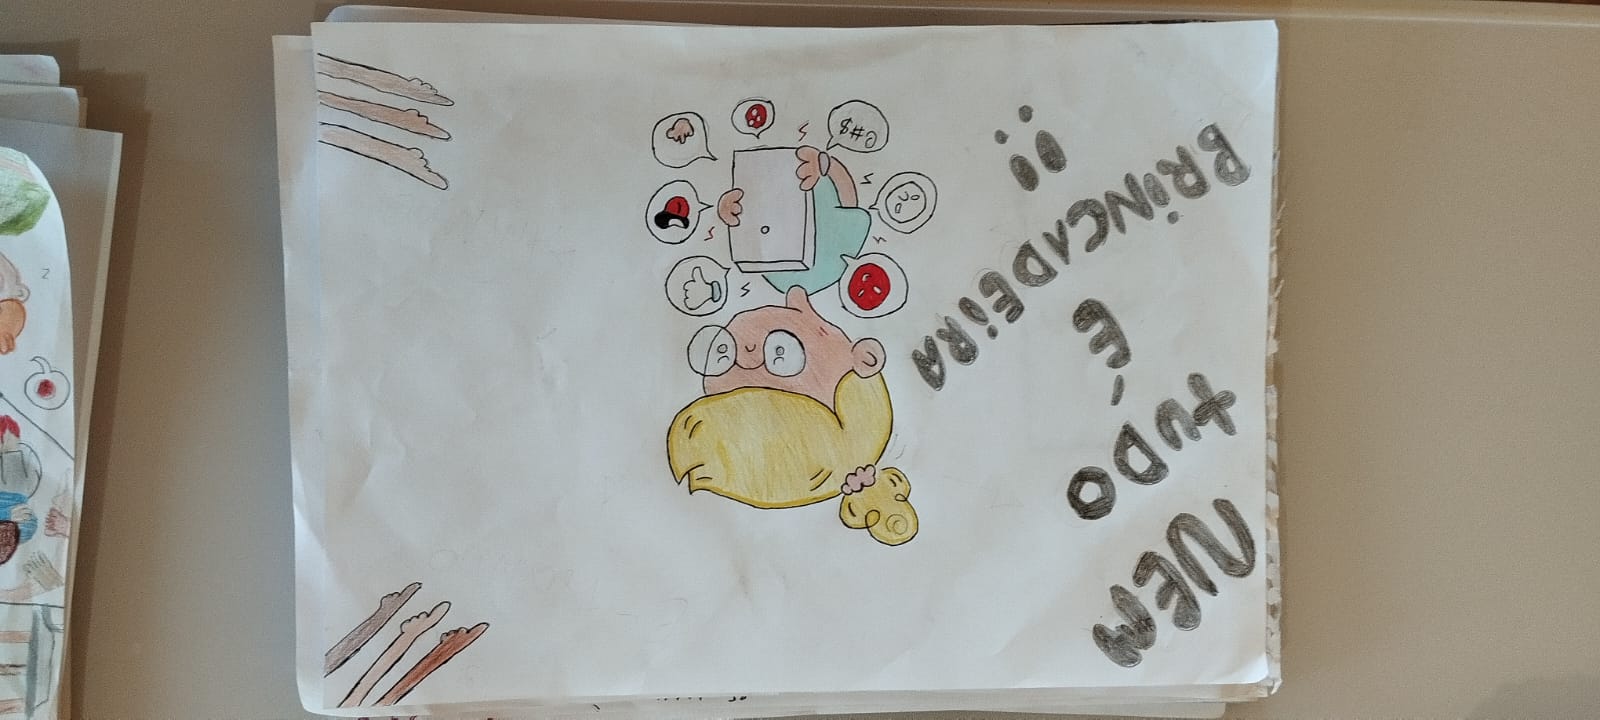 NEM
tuDO
É
BRiNCADEiRA
!!
@#$